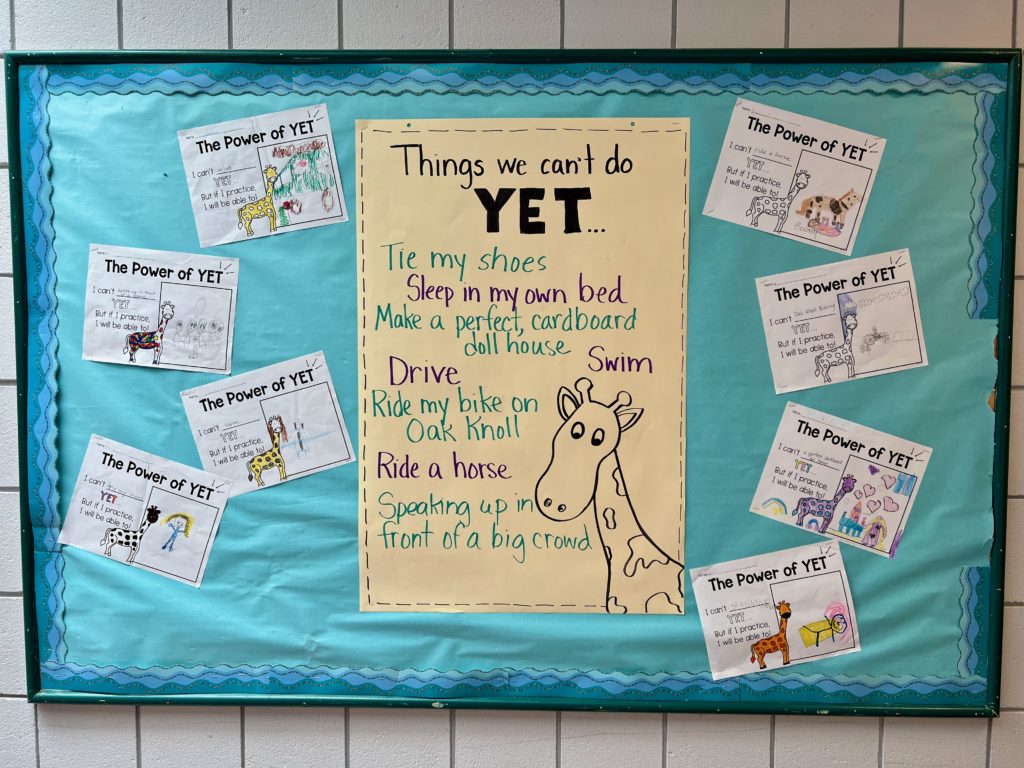 Things we can't do
YET...
Tie my shoes
Sleep in my own bed
Make a perfect, cardboard
doll house
Swim
Drive
Ride my bike on
Oak Knoll
Ride a horse
Speaking up in
front of a big crowd
The Power of YET
I can't drive
YET...
But if I practice,
I will be able to!
The Power of YET
I can't
YET...
But if I practice,
I will be able to!
The Power of YET
I can't
YET...
But if I practice,
I will be able to!
The Power of YET
I can't
YET
But if I practice,
I will be able to!
The Power of YET
I can't ride a horse
YET...
But if I practice,
I will be able to!
The Power of YET
I can't
YET...
But if I practice,
I will be able to!
The Power of YET
I can't
YET
But if I practice,
I will be able to!
The Power of YET
I can't
YET...
But if I practice,
I will be able to!